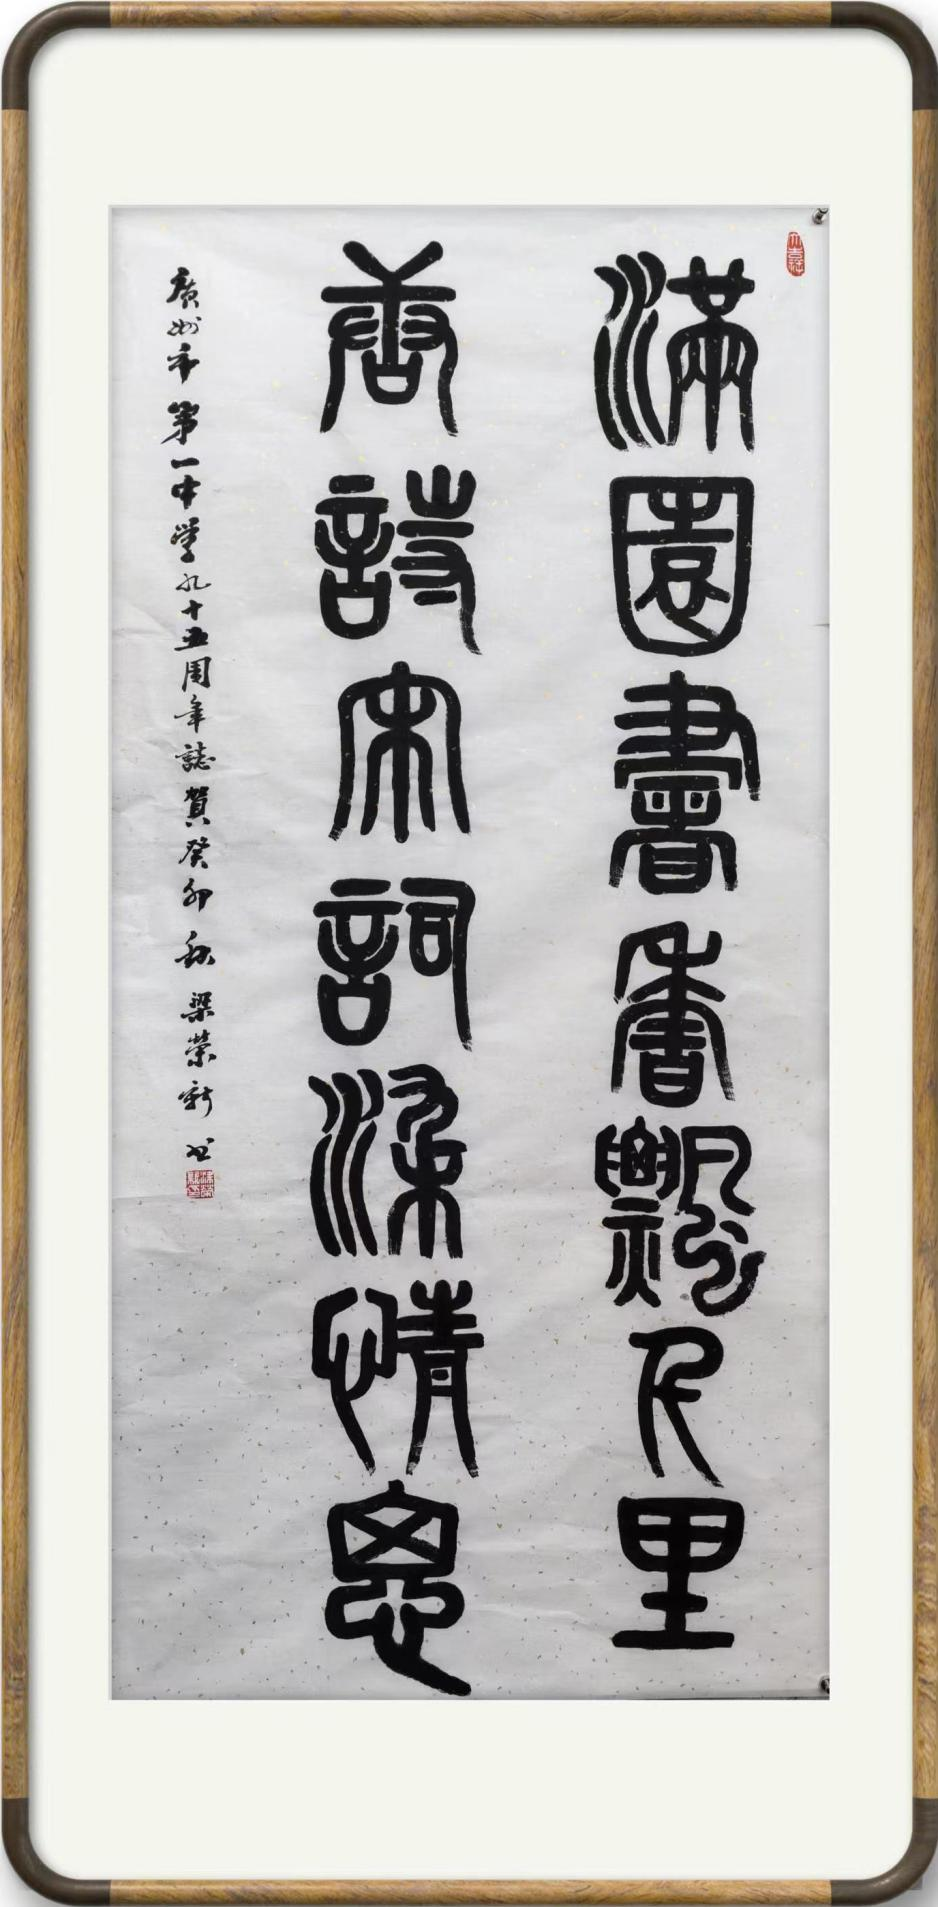 滿園書香飄千里
唐詩宋詞染情思
廣州市第一中學九十五周年誌賀癸卯秋梁榮新书